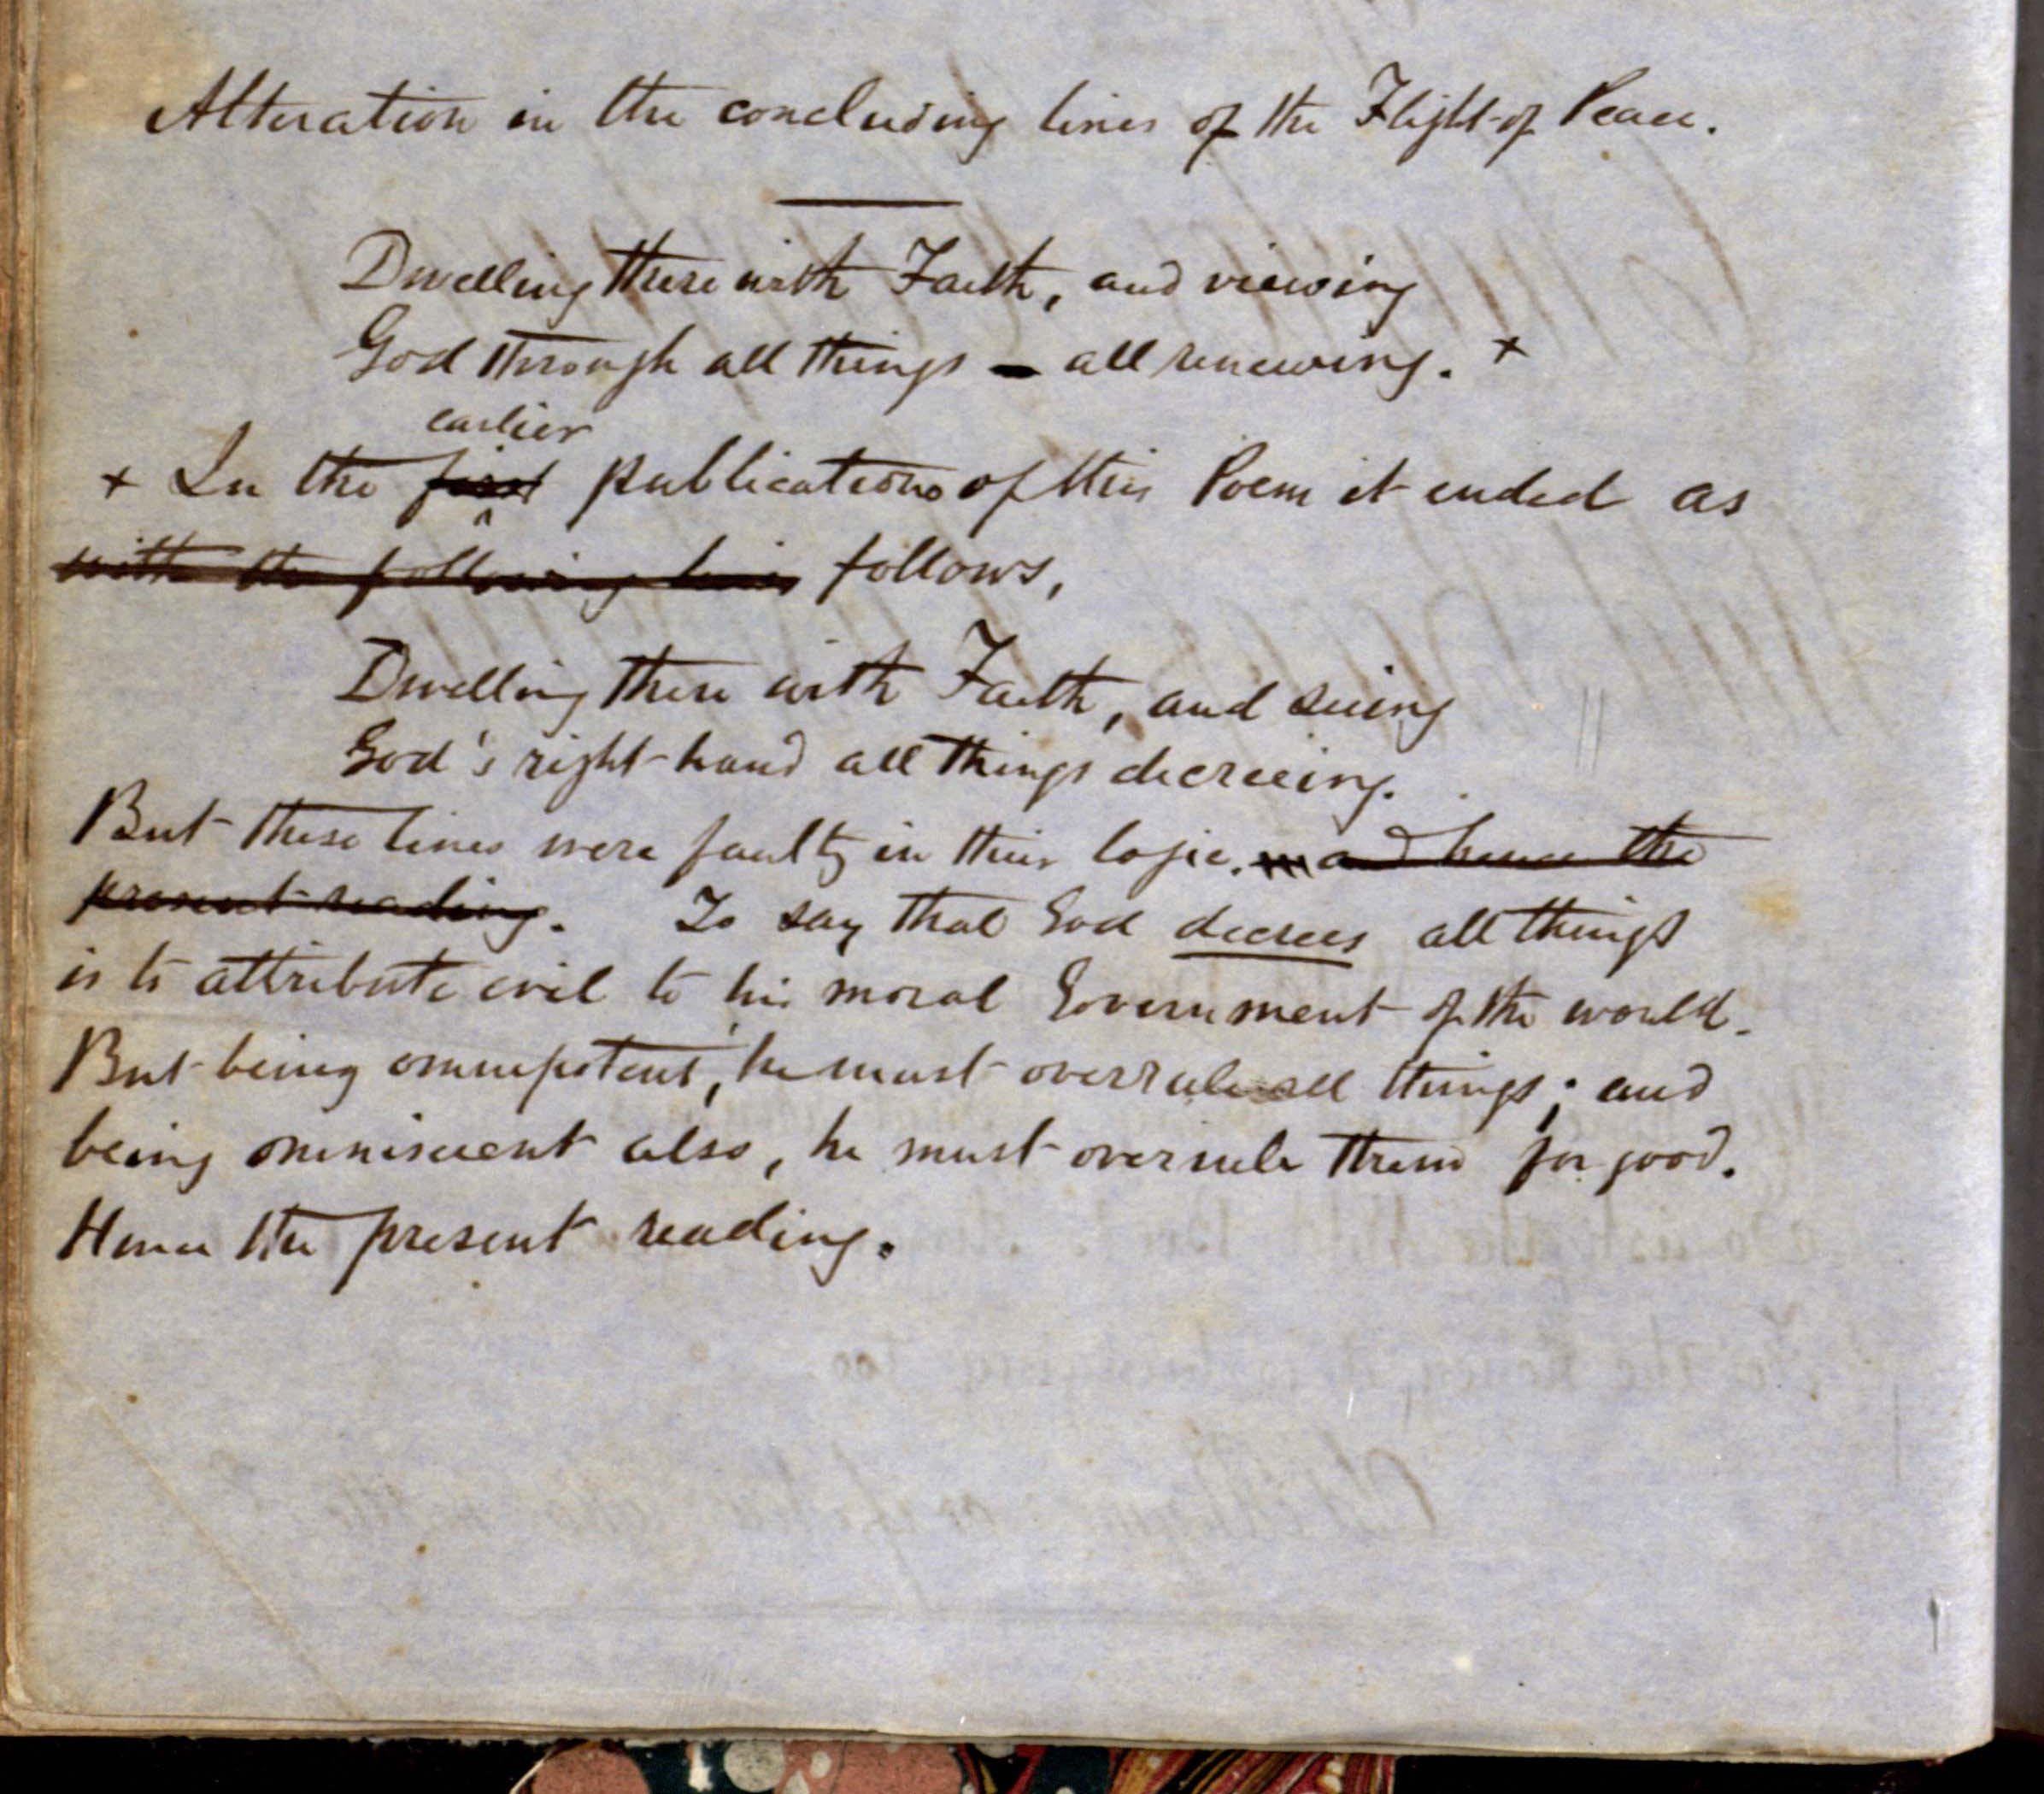 Alteration in the concluding lines of the Flight of Peace.
Dwelling there with Faith, and viewing
God through all things – all renewing. +
earlier
+ In the first publications of this Poem it ended as
with the following lines follows,
Dwelling there with Faith, and seeing
God's right hand all things decreeing.
But these lines were faulty in their logic. and hence the
present reading. To say that God decrees all things
is to attribute evil to his moral Government of the world.
But being omnipotent, he must overrule all things; and
being omniscient also, he must overrule them for good.
Hence the present reading.